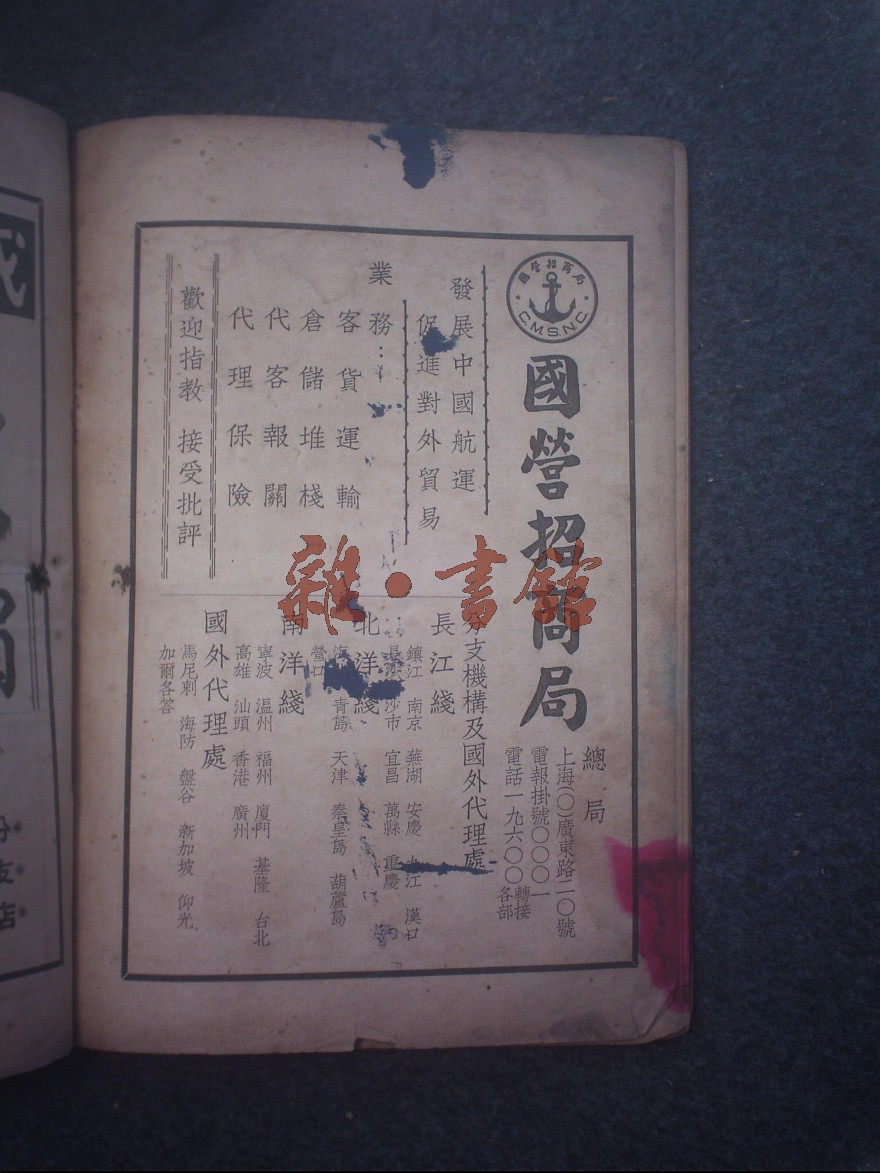 國營招商局
C.M.S.N.C.
國營招商局
總局
上海(〇)廣東路二〇號
電報掛號〇〇〇一
電話一九六〇〇轉接各部
發展中國航運
促進對外貿易
業務：
客貨運輸
倉儲堆棧
代客報關
代理保險
歡迎指教 接受批評
分支機構及國外代理處
長江綫
鎮江 南京 蕪湖 安慶 九江 漢口
長沙 沙市 宜昌 萬縣 重慶
北洋綫
海 青島 天津 秦皇島 葫蘆島
營口
南洋綫
寧波 温州 福州 廈門 基隆 台北
高雄 汕頭 香港 廣州
國外代理處
馬尼剌 海防 盤谷 新加坡 仰光
加爾各答
雜·書館
分支店